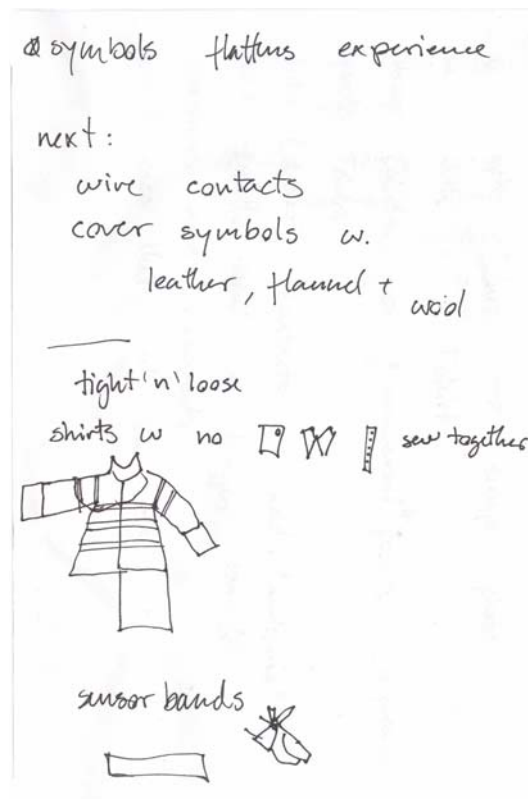 symbols flattens experience
next:
wire contacts
cover symbols w.
leather, flannel +
wool
tight 'n' loose
shirts w no sew together
sensor bands